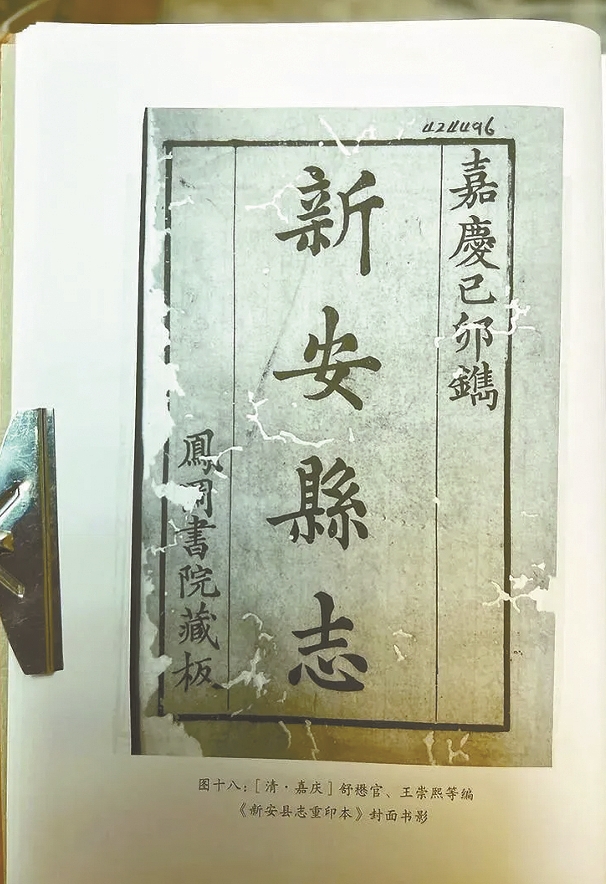 424496
嘉慶己卯鐫
新安縣志
鳳岡書院藏板
图十八：[清·嘉庆]舒懋官、王崇熙等编
《新安县志重印本》封面书影